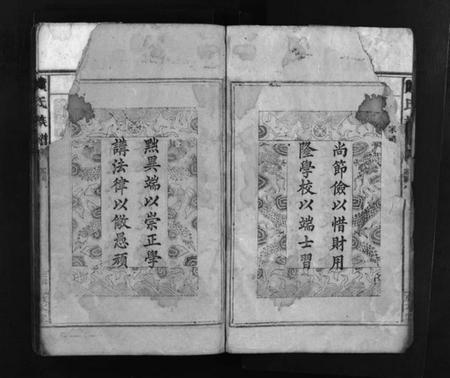 尚節儉以惜財用
隆學校以端士習
黜異端以崇正學
講法律以儆愚頑
氏族譜